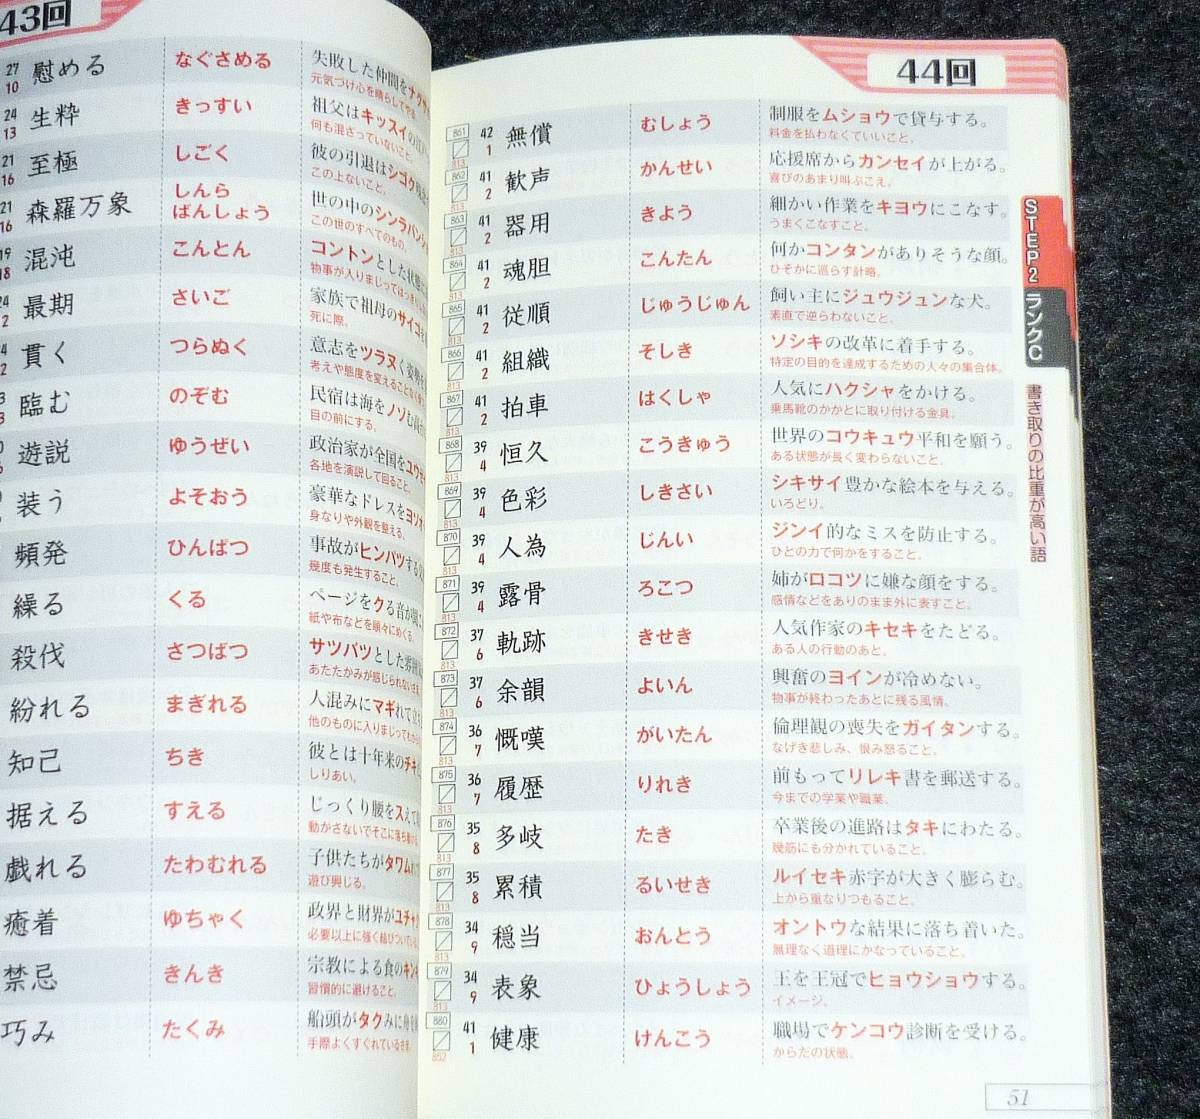 43回
27
10
慰める
なぐさめる
失敗した仲間をナグサ
元気づけ心を晴らしてやる。
24
13
生粋
きっすい
祖父はキッスイの
何も混ざっていないこと。
21
16
至極
しごく
彼の引退はシゴク
この上ないこと。
21
16
森羅万象
しんら
ばんしょう
世の中のシンラバンショ
この世のすべてのもの。
19
18
混沌
こんとん
コントンとした状態
物事が入りまじって
最期
さいご
家族で祖母のサイゴを
死に際。
貫く
つらぬく
意志をツラヌく姿勢
考えや態度を変えることなく
臨む
のぞむ
民宿は海をノゾむ
目の前にする。
遊説
ゆうぜい
政治家が全国をユウゼ
各地を演説して回ること。
装う
よそおう
豪華なドレスをヨソオ
身なりや外観を整える。
頻発
ひんぱつ
事故がヒンパツする
幾度も発生すること。
繰る
くる
ページをクる音が
紙や布などを順々にめくる。
殺伐
さつばつ
サツバツとした雰囲
あたたかみが感じられない
紛れる
まぎれる
人混みにマギれて
他のものに入りまじって
知己
ちき
彼とは十年来のチキ
しりあい。
据える
すえる
じっくり腰をスえて
動かさないでそこに落ち着ける。
戯れる
たわむれる
子供たちがタワムれ
遊び興じる。
癒着
ゆちゃく
政界と財界がユチャ
必要以上に強く結びついている
禁忌
きんき
宗教による食のキンキ
習慣的に避けること。
巧み
たくみ
船頭がタクみに舟を
手際よくすぐれているさま。
44回
861
813
42
1
無償
むしょう
制服をムショウで貸与する。
料金を払わなくていいこと。
862
813
41
2
歓声
かんせい
応援席からカンセイが上がる。
喜びのあまり叫ぶこえ。
863
813
41
2
器用
きよう
細かい作業をキヨウにこなす。
うまくこなすこと。
864
813
41
2
魂胆
こんたん
何かコンタンがありそうな顔。
ひそかに巡らす計略。
865
813
41
2
従順
じゅうじゅん
飼い主にジュウジュンな犬。
素直で逆らわないこと。
866
813
41
2
組織
そしき
ソシキの改革に着手する。
特定の目的を達成するための人々の集合体。
867
813
41
2
拍車
はくしゃ
人気にハクシャをかける。
乗馬靴のかかとに取り付ける金具。
868
813
39
4
恒久
こうきゅう
世界のコウキュウ平和を願う。
ある状態が長く変わらないこと。
869
813
39
4
色彩
しきさい
シキサイ豊かな絵本を与える。
いろどり。
870
813
39
4
人為
じんい
ジンイ的なミスを防止する。
ひとの力で何かをすること。
871
813
39
4
露骨
ろこつ
姉がロコツに嫌な顔をする。
感情などをありのまま外に表すこと。
872
813
37
6
軌跡
きせき
人気作家のキセキをたどる。
ある人の行動のあと。
873
813
37
6
余韻
よいん
興奮のヨインが冷めない。
物事が終わったあとに残る風情。
874
813
36
7
慨嘆
がいたん
倫理観の喪失をガイタンする。
なげき悲しみ、恨み怒ること。
875
813
36
7
履歴
りれき
前もってリレキ書を郵送する。
今までの学業や職業。
876
813
35
8
多岐
たき
卒業後の進路はタキにわたる。
幾筋にも分かれていること。
877
813
35
8
累積
るいせき
ルイセキ赤字が大きく膨らむ。
上から重なりつもること。
878
813
34
9
穏当
おんとう
オントウな結果に落ち着いた。
無理なく道理にかなっていること。
879
813
34
9
表象
ひょうしょう
王を王冠でヒョウショウする。
イメージ。
880
852
41
1
健康
けんこう
職場でケンコウ診断を受ける。
からだの状態。
STEP2 ランクC
書き取りの比重が高い語
51